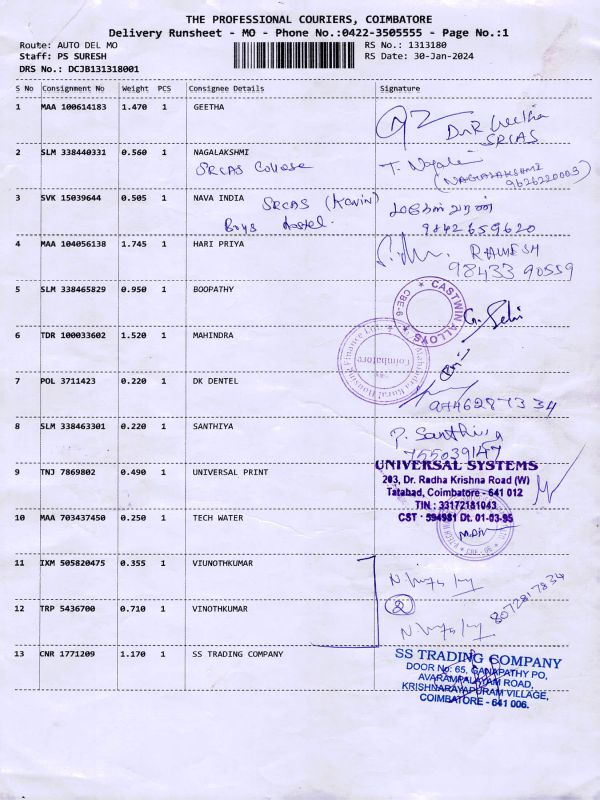 THE PROFESSIONAL COURIERS, COIMBATORE
Delivery Runsheet - MO - Phone No.:0422-3505555 - Page No.:1
Route: AUTO DEL MO RS No.: 1313180
Staff: PS SURESH RS Date: 30-Jan-2024
DRS No.: DCJB131318001
S No Consignment No Weight PCS Consignee Details Signature
1 MAA 100614183 1.470 1 GEETHA
SRCAS
2 SLM 338440331 0.560 1 NAGALAKSHMI
SRCAS College T. Nagale
(NAGALAKSHMI
9626220003)
3 SVK 15039644 0.505 1 NAVA INDIA SRCAS (Kavin)
Boys Hostel.
9842659620
4 MAA 104056138 1.745 1 HARI PRIYA RAMESH
98433 90559
5 SLM 338465829 0.950 1 BOOPATHY
CASTWIN ALLOYS CBE-6
G. Selvi
6 TDR 100033602 1.520 1 MAHINDRA
Mahindra Rural Housing Finance Ltd. Coimbatore
7 POL 3711423 0.220 1 DK DENTEL
8 SLM 338463301 0.220 1 SANTHIYA P. Santhiya
755039147
9 TNJ 7869802 0.490 1 UNIVERSAL PRINT
UNIVERSAL SYSTEMS
203, Dr. Radha Krishna Road (W)
Tatabad, Coimbatore - 641 012
TIN : 33172181043
CST - 594981 Dt. 01-03-95
10 MAA 703437450 0.250 1 TECH WATER
11 IXM 505820475 0.355 1 VIUNOTHKUMAR
12 TRP 5436700 0.710 1 VINOTHKUMAR
2
8072817834
13 CNR 1771209 1.170 1 SS TRADING COMPANY
SS TRADING COMPANY
DOOR No: 65, GANAPATHY PO,
AVARAMPALAYAM ROAD,
KRISHNARAYAPURAM VILLAGE,
COIMBATORE - 641 006.